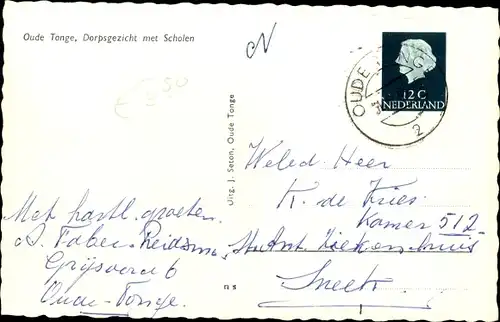 Oude Tonge, Dorpsgezicht met Scholen
12 C
NEDERLAND
OUDE
2
Uitg. J. Seton, Oude Tonge
Weled. Heer
K. de Vries
Kamer 512
St. Ant. Ziekenhuis
Sneek
Met hartl. groeten
Faber
6
Oude-Tonge.
ns